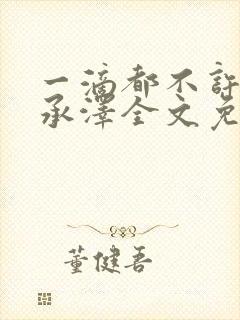 一滴都不许
承泽全文免
董健吾